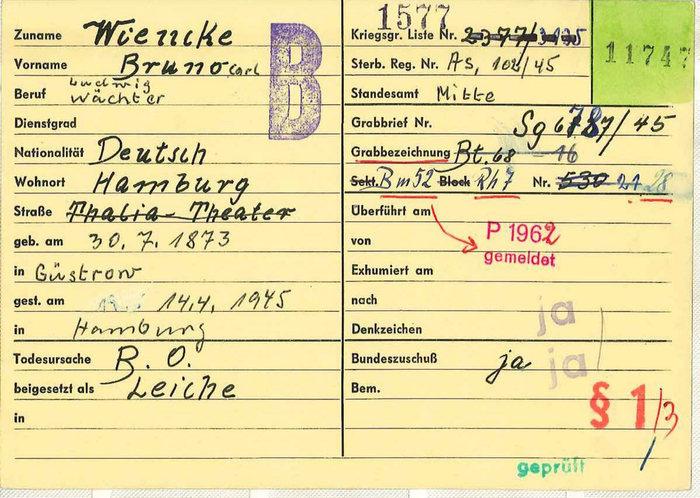 1577
11747
B
Zuname Wiencke
Vorname Bruno Carl
Ludwig
Beruf Wächter
Dienstgrad
Nationalität Deutsch
Wohnort Hamburg
Straße Thalia-Theater
geb. am 30. 7. 1873
in Güstrow
gest. am 14.4. 1945
in Hamburg
Todesursache B. O.
beigesetzt als Leiche
in
Kriegsgr. Liste Nr. 2377/3135
Sterb. Reg. Nr. As, 102/45
Standesamt Mitte
Grabbrief Nr. Sg 6787/45
Grabbezeichnung Bt. 68 - 16
Sekt. Bm52 Block Rh7 Nr. 530 27 28
Überführt am
von P 1962
gemeldet
Exhumiert am
nach
Denkzeichen ja
Bundeszuschuß ja ja
Bem.
§ 1/3
geprüft